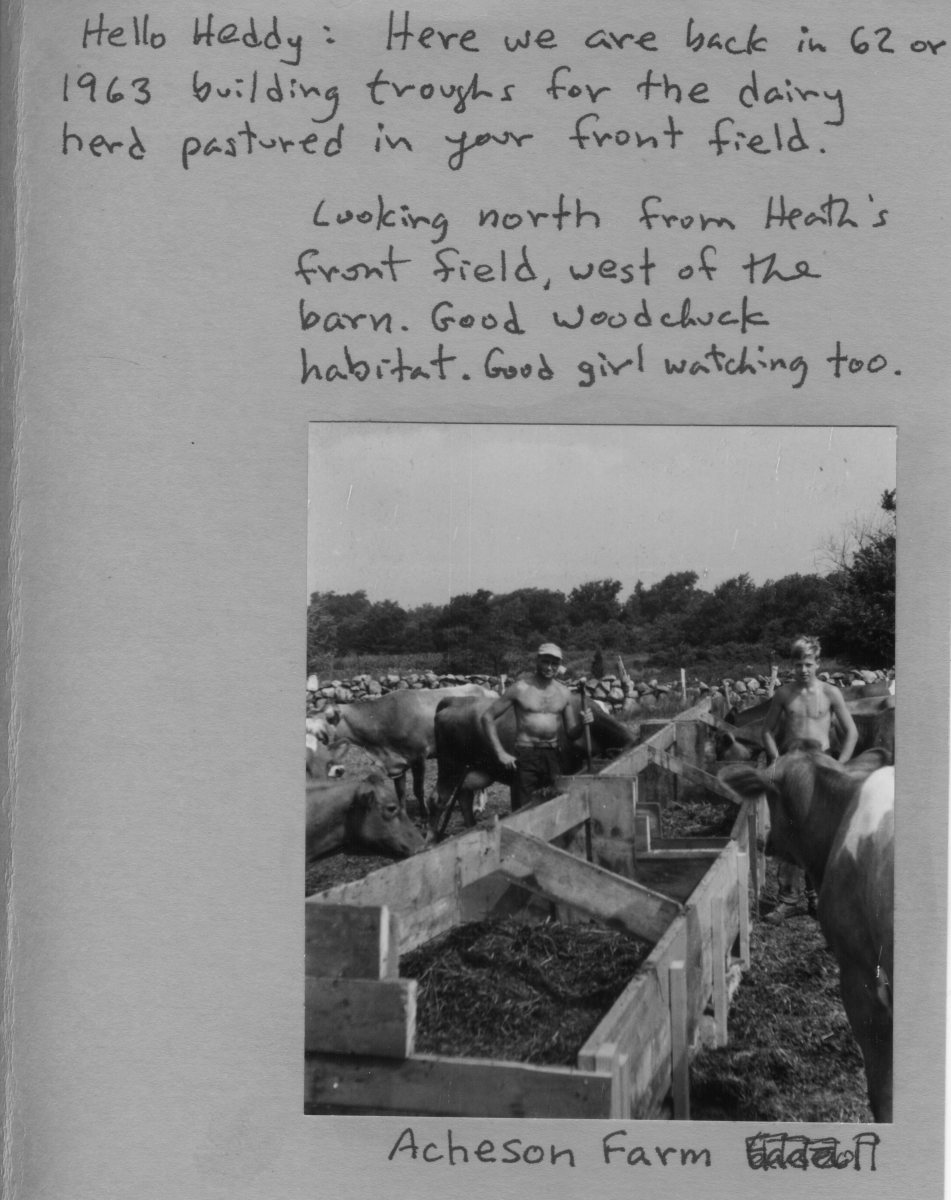 Hello Heddy: Here we are back in 62 or
1963 building troughs for the dairy
herd pastured in your front field.
Looking north from Heath's
front field, west of the
barn. Good woodchuck
habitat. Good girl watching too.
Acheson Farm